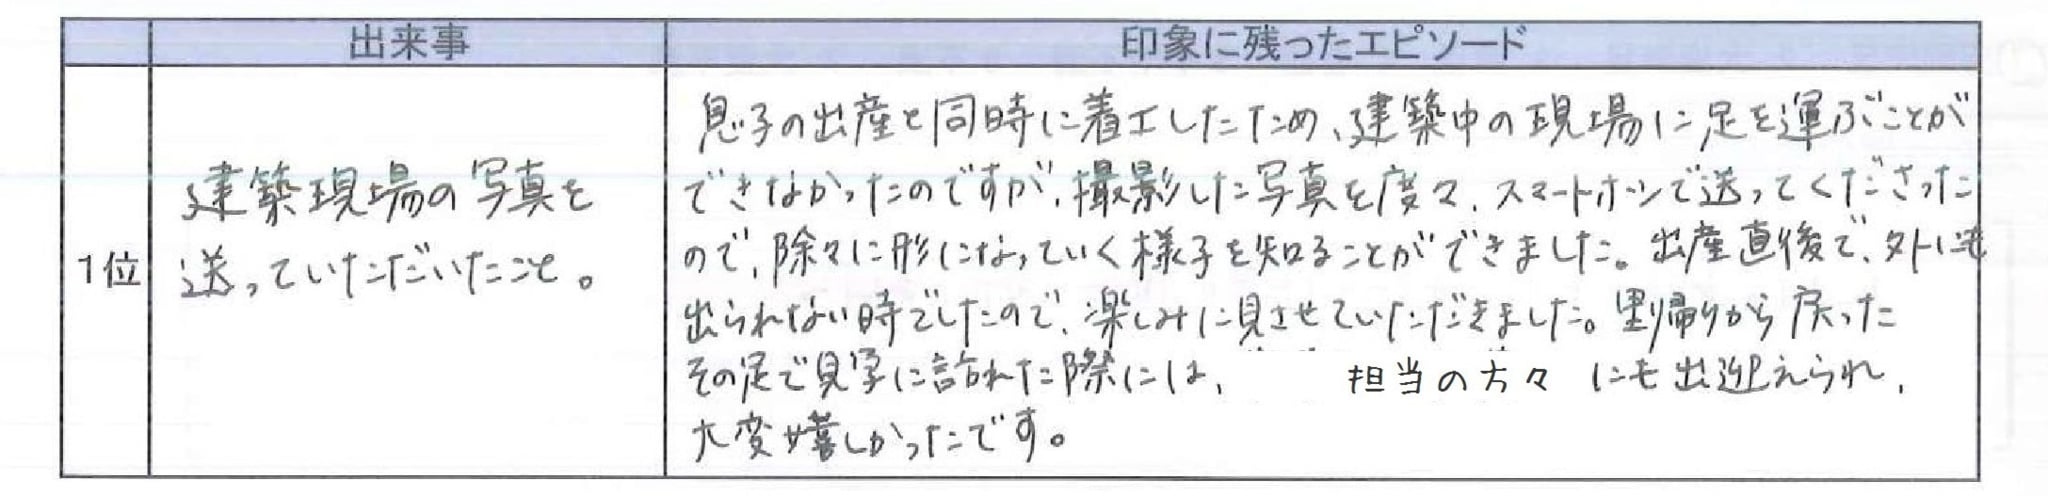 出来事
印象に残ったエピソード
1位
建築現場の写真を
送っていただいたこと。
息子の出産と同時に着工したため、建築中の現場に足を運ぶことが
できなかったのですが、撮影した写真を度々、スマートホンで送ってくださった
ので、除々に形になっていく様子を知ることができました。出産直後で、外にも
出られない時でしたので、楽しみに見させていただきました。里帰りから戻った
その足で見学に訪れた際には、担当の方々にも出迎えられ、
大変嬉しかったです。